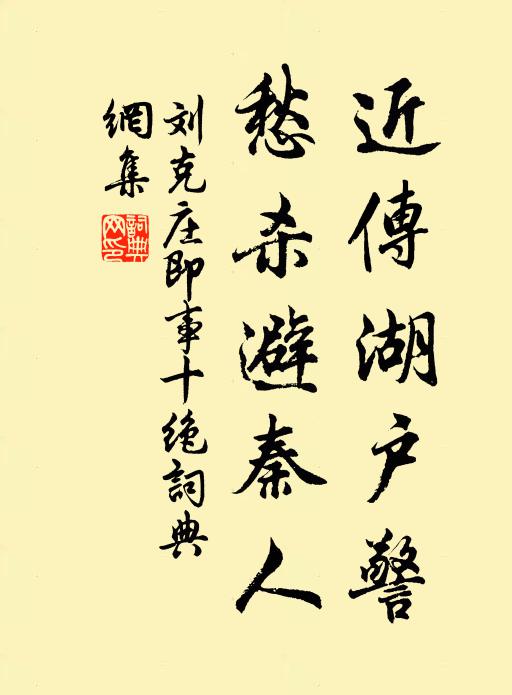 近傳湖户警
愁杀避秦人
刘克庄即事十绝詞典
網集
詞典網印